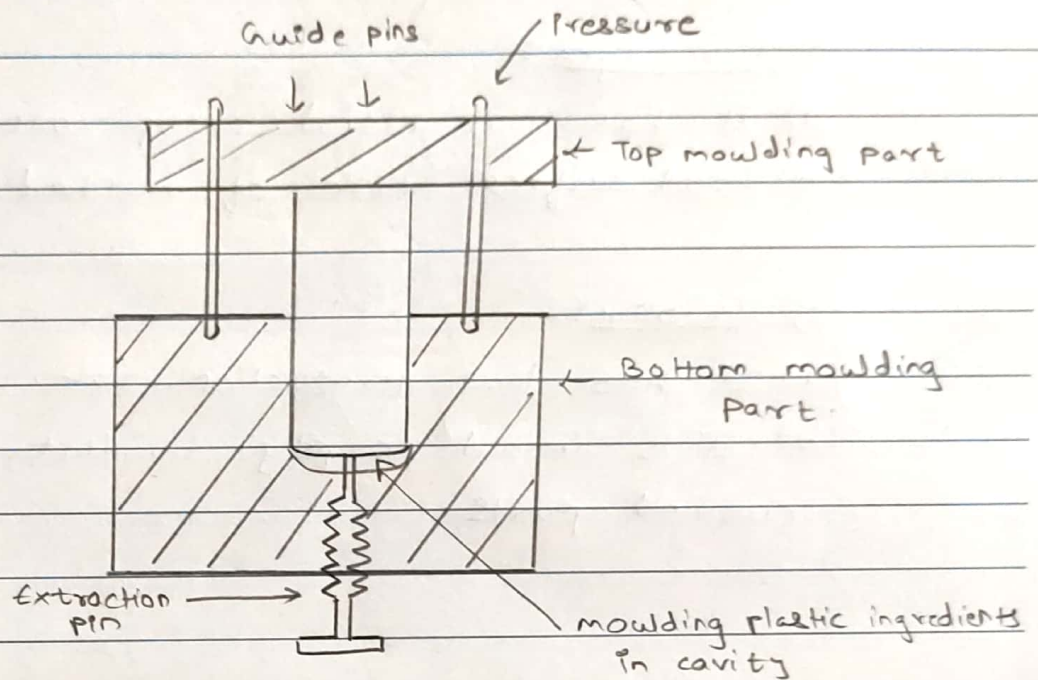 Guide pins
Pressure
Top moulding part
Bottom moulding
part.
Extraction
pin
moulding plastic ingredients
in cavity